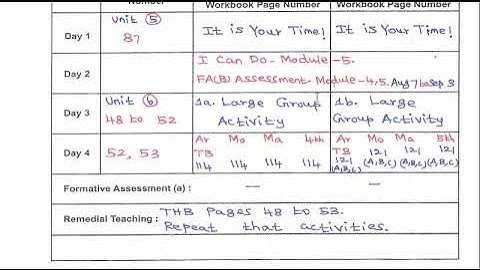 Number Workbook Page Number Workbook Page Number
Day 1 Unit 5 It is Your Time! It is Your Time!
87
Day 2 I Can Do - Module - 5.
FA(B) Assessment - Module - 4,5. Aug 7 to Sep 3
Day 3 Unit 6 1a. Large Group 1b. Large
48 to 52 Activity Group Activity
Day 4 52, 53 Ar Mo Ma 4th Ar Mo Ma 5th
TB TB 121 121 121
114 114 114 114 121 (A,B,C) (A,B,C) (A,B,C)
(A,B,C)
Formative Assessment (a) : — —
Remedial Teaching : THB Pages 48 to 53.
Repeat that activities.